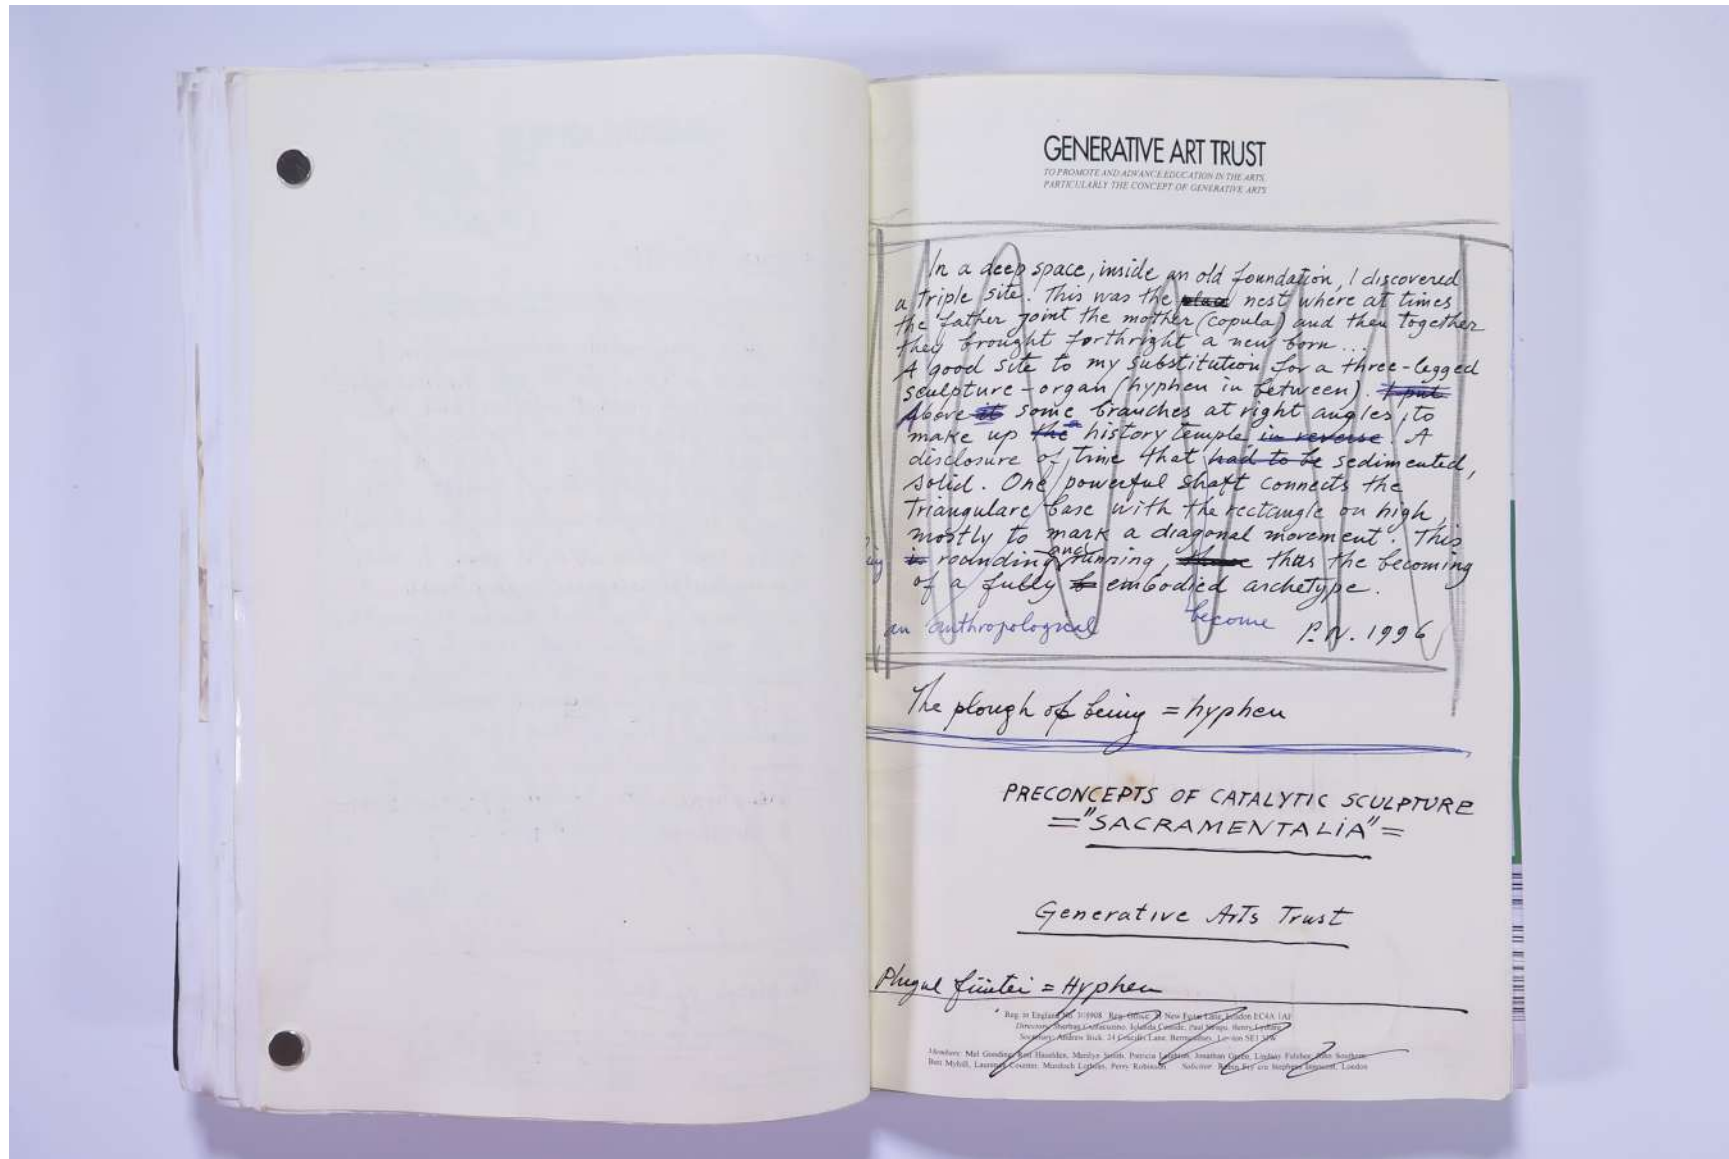 GENERATIVE ART TRUST
TO PROMOTE AND ADVANCE EDUCATION IN THE ARTS,
PARTICULARLY THE CONCEPT OF GENERATIVE ARTS
In a deep space, inside an old foundation, I discovered
a triple site. This was the place nest where at times
the father joint the mother (copula) and then together
they brought forthright a new born...
A good site to my substitution for a three-legged
sculpture-organ (hyphen in between). I put
Above it some branches at right angles, to
make up the a history temple in reverse. A
disclosure of time that had to be sedimented,
solid. One powerful shaft connects the
Triangulare base with the rectangle on high,
mostly to mark a diagonal movement. This
is rounding and running, thus the becoming
of a fully embodied archetype.
an anthropological become P.N. 1996
The plough of being = hyphen
PRECONCEPTS OF CATALYTIC SCULPTURE
="SACRAMENTALIA"=
Generative Arts Trust
Plugul ființei = Hyphen
Reg. in England No. Reg. Office: New Fetter Lane, London EC4A 1AP
Directors: Sherban Cantacuzino, Paul Neagu, Henry Lydiate
Secretary: Andrew Stick, 24 Lane, Bermondsey, London SE1
Members: Mel Gooding, Marilyn Smith, Patricia Jonathan Green, Lindsay John Southern,
Myhill, Laurence Counter, Murdoch Lothian, Perry Robinson Solicitor: Robin Fry c/o Stephens Innocent, London